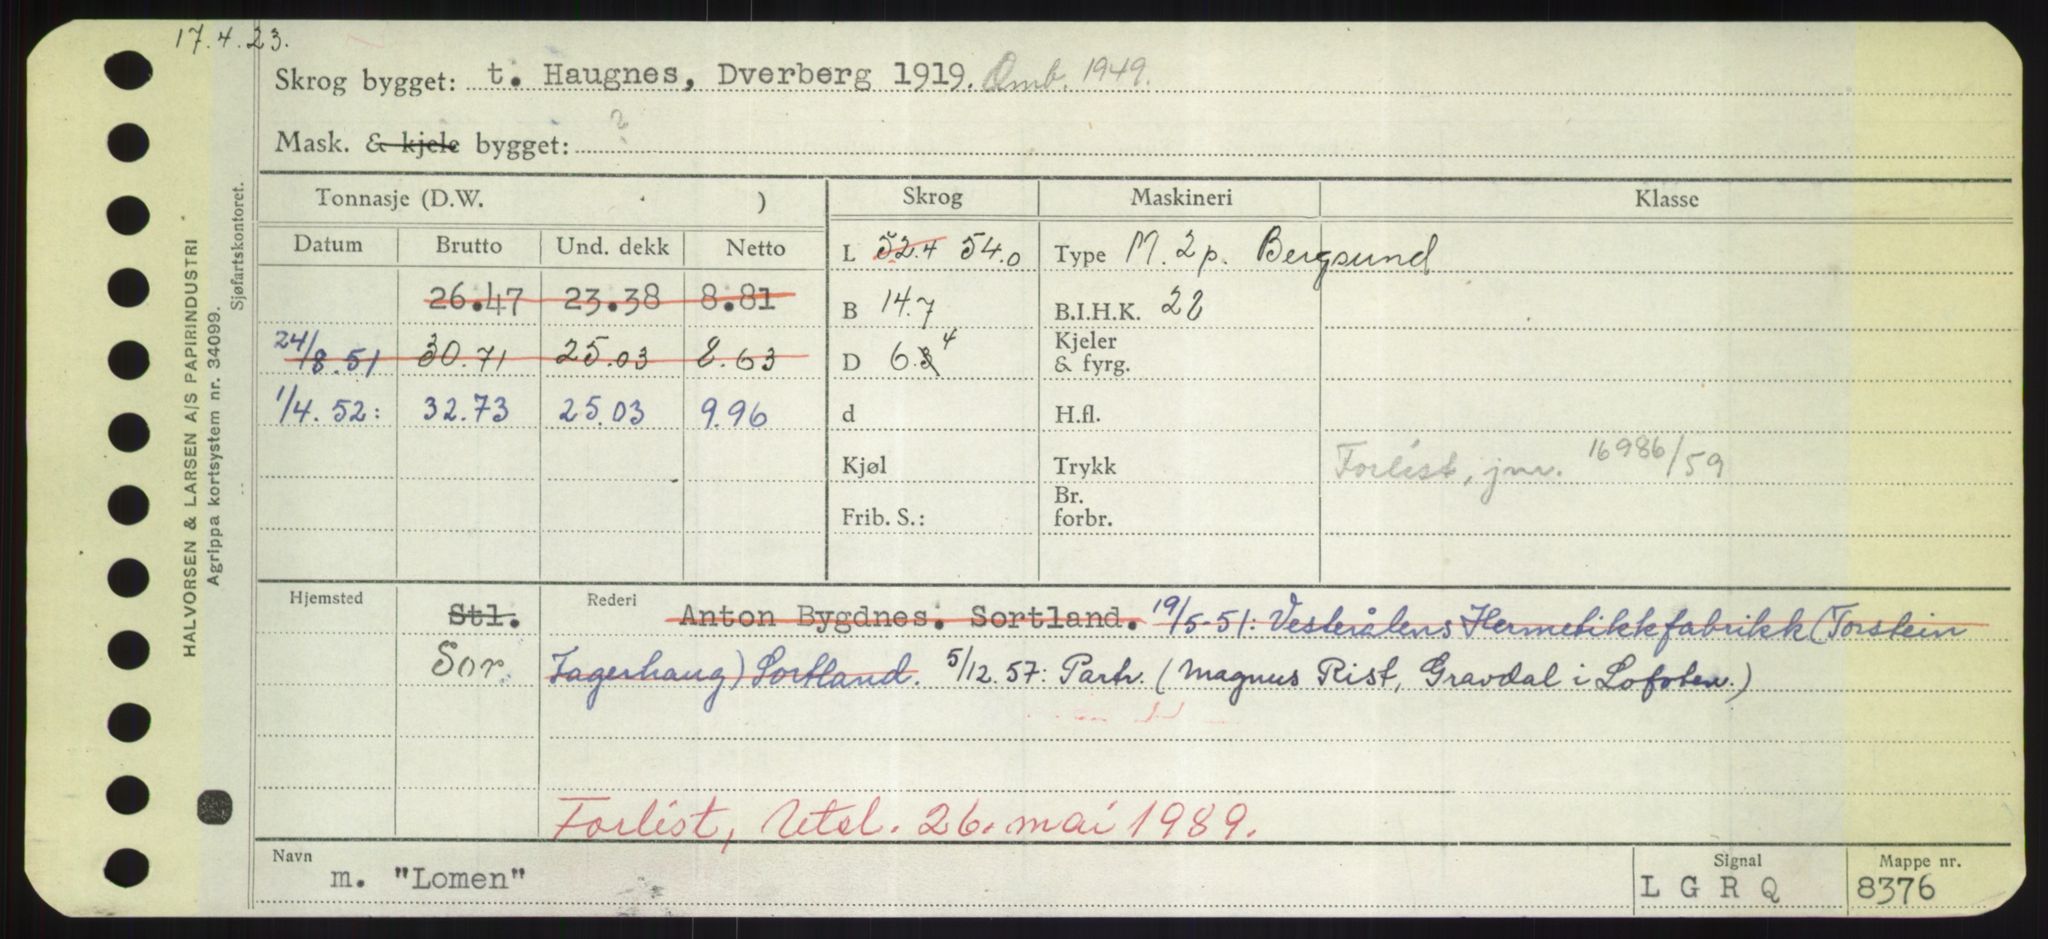 17.4.23.
Skrog bygget: t. Haugnes, Dverberg 1919. Omb. 1949.
Mask. & kjele bygget: ?
Tonnasje (D.W. ) Skrog Maskineri Klasse
Datum Brutto Und. dekk Netto
L 52.4 54.0 Type M. 2p. Bergsund
26.47 23.38 8.81
B 14.7 B.I.H.K. 22
24/8.51 30.71 25.03 8.63
D 6.3 4 Kjeler & fyrg.
1/4. 52: 32.73 25.03 9.96
d H.fl.
Kjøl Trykk Forlist, jnr. 16986/59
Frib. S.: Br. forbr.
Hjemsted Rederi
Stl. Anton Bygdnes. Sortland. 19/5-51: Vesterålens Hermetikkfabrikk (Torstein
Sor Jagerhaug) Sortland. 5/12.57: Partr. (Magnus Rist, Gravdal i Lofoten.)
Forlist, Utsl. 26. mai 1989.
Navn Signal Mappe nr.
m. "Lomen" L G R Q 8376
HALVORSEN & LARSEN A/S PAPIRINDUSTRI
Agrippa kortsystem nr. 34099.
Sjøfartskontoret.